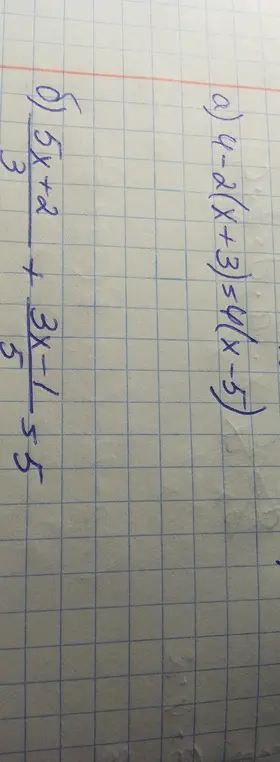 а) 4-2(x+3)=4(x-5)
б) \frac{5x+2}{3} + \frac{3x-1}{5} = 5